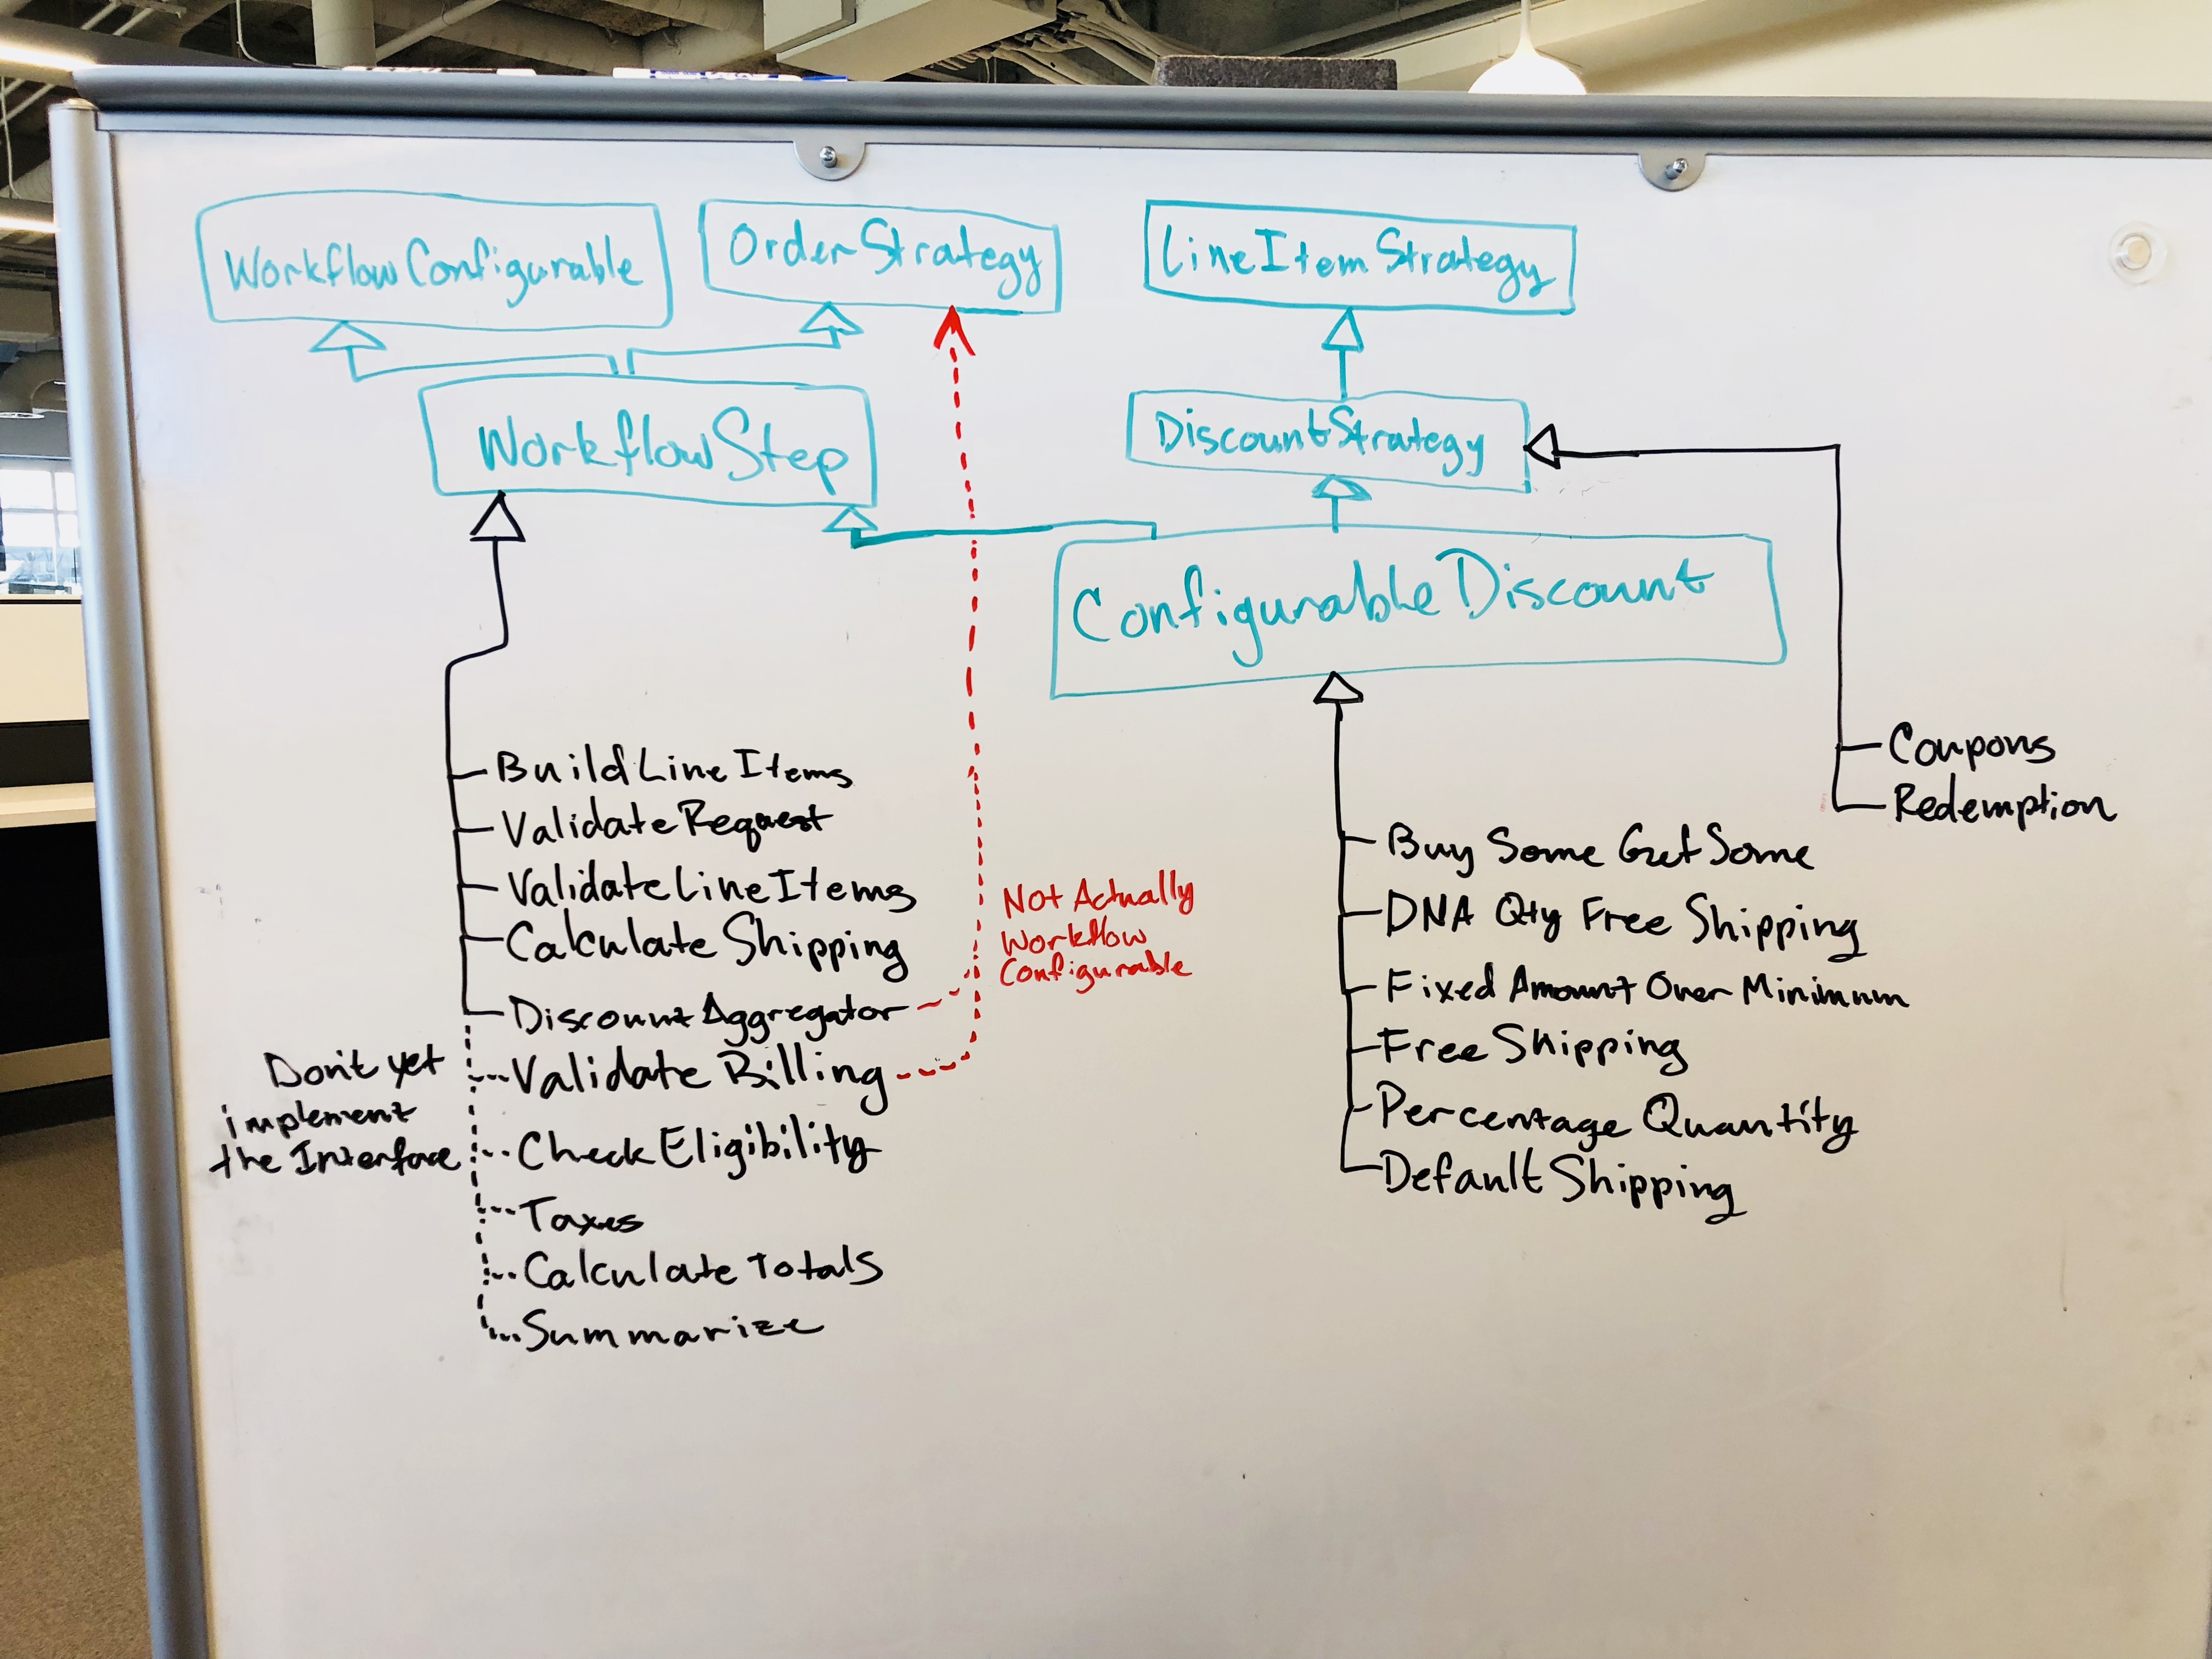 WorkflowConfigurable
OrderStrategy
LineItemStrategy
WorkflowStep
DiscountStrategy
ConfigurableDiscount
BuildLineItems
ValidateRequest
ValidateLineItems
Calculate Shipping
DiscountAggregator
Validate Billing
CheckEligibility
Taxes
Calculate Totals
Summarize
Don't yet
implement
the Interface
Not Actually
Workflow
Configurable
Buy Some Get Some
DNA Qty Free Shipping
Fixed Amount Over Minimum
Free Shipping
Percentage Quantity
Default Shipping
Coupons
Redemption